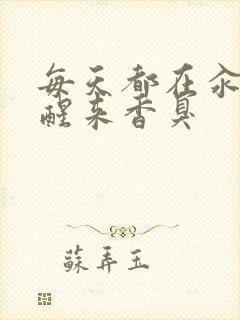 每天都在汆
醒来香臭
蘇弄玉